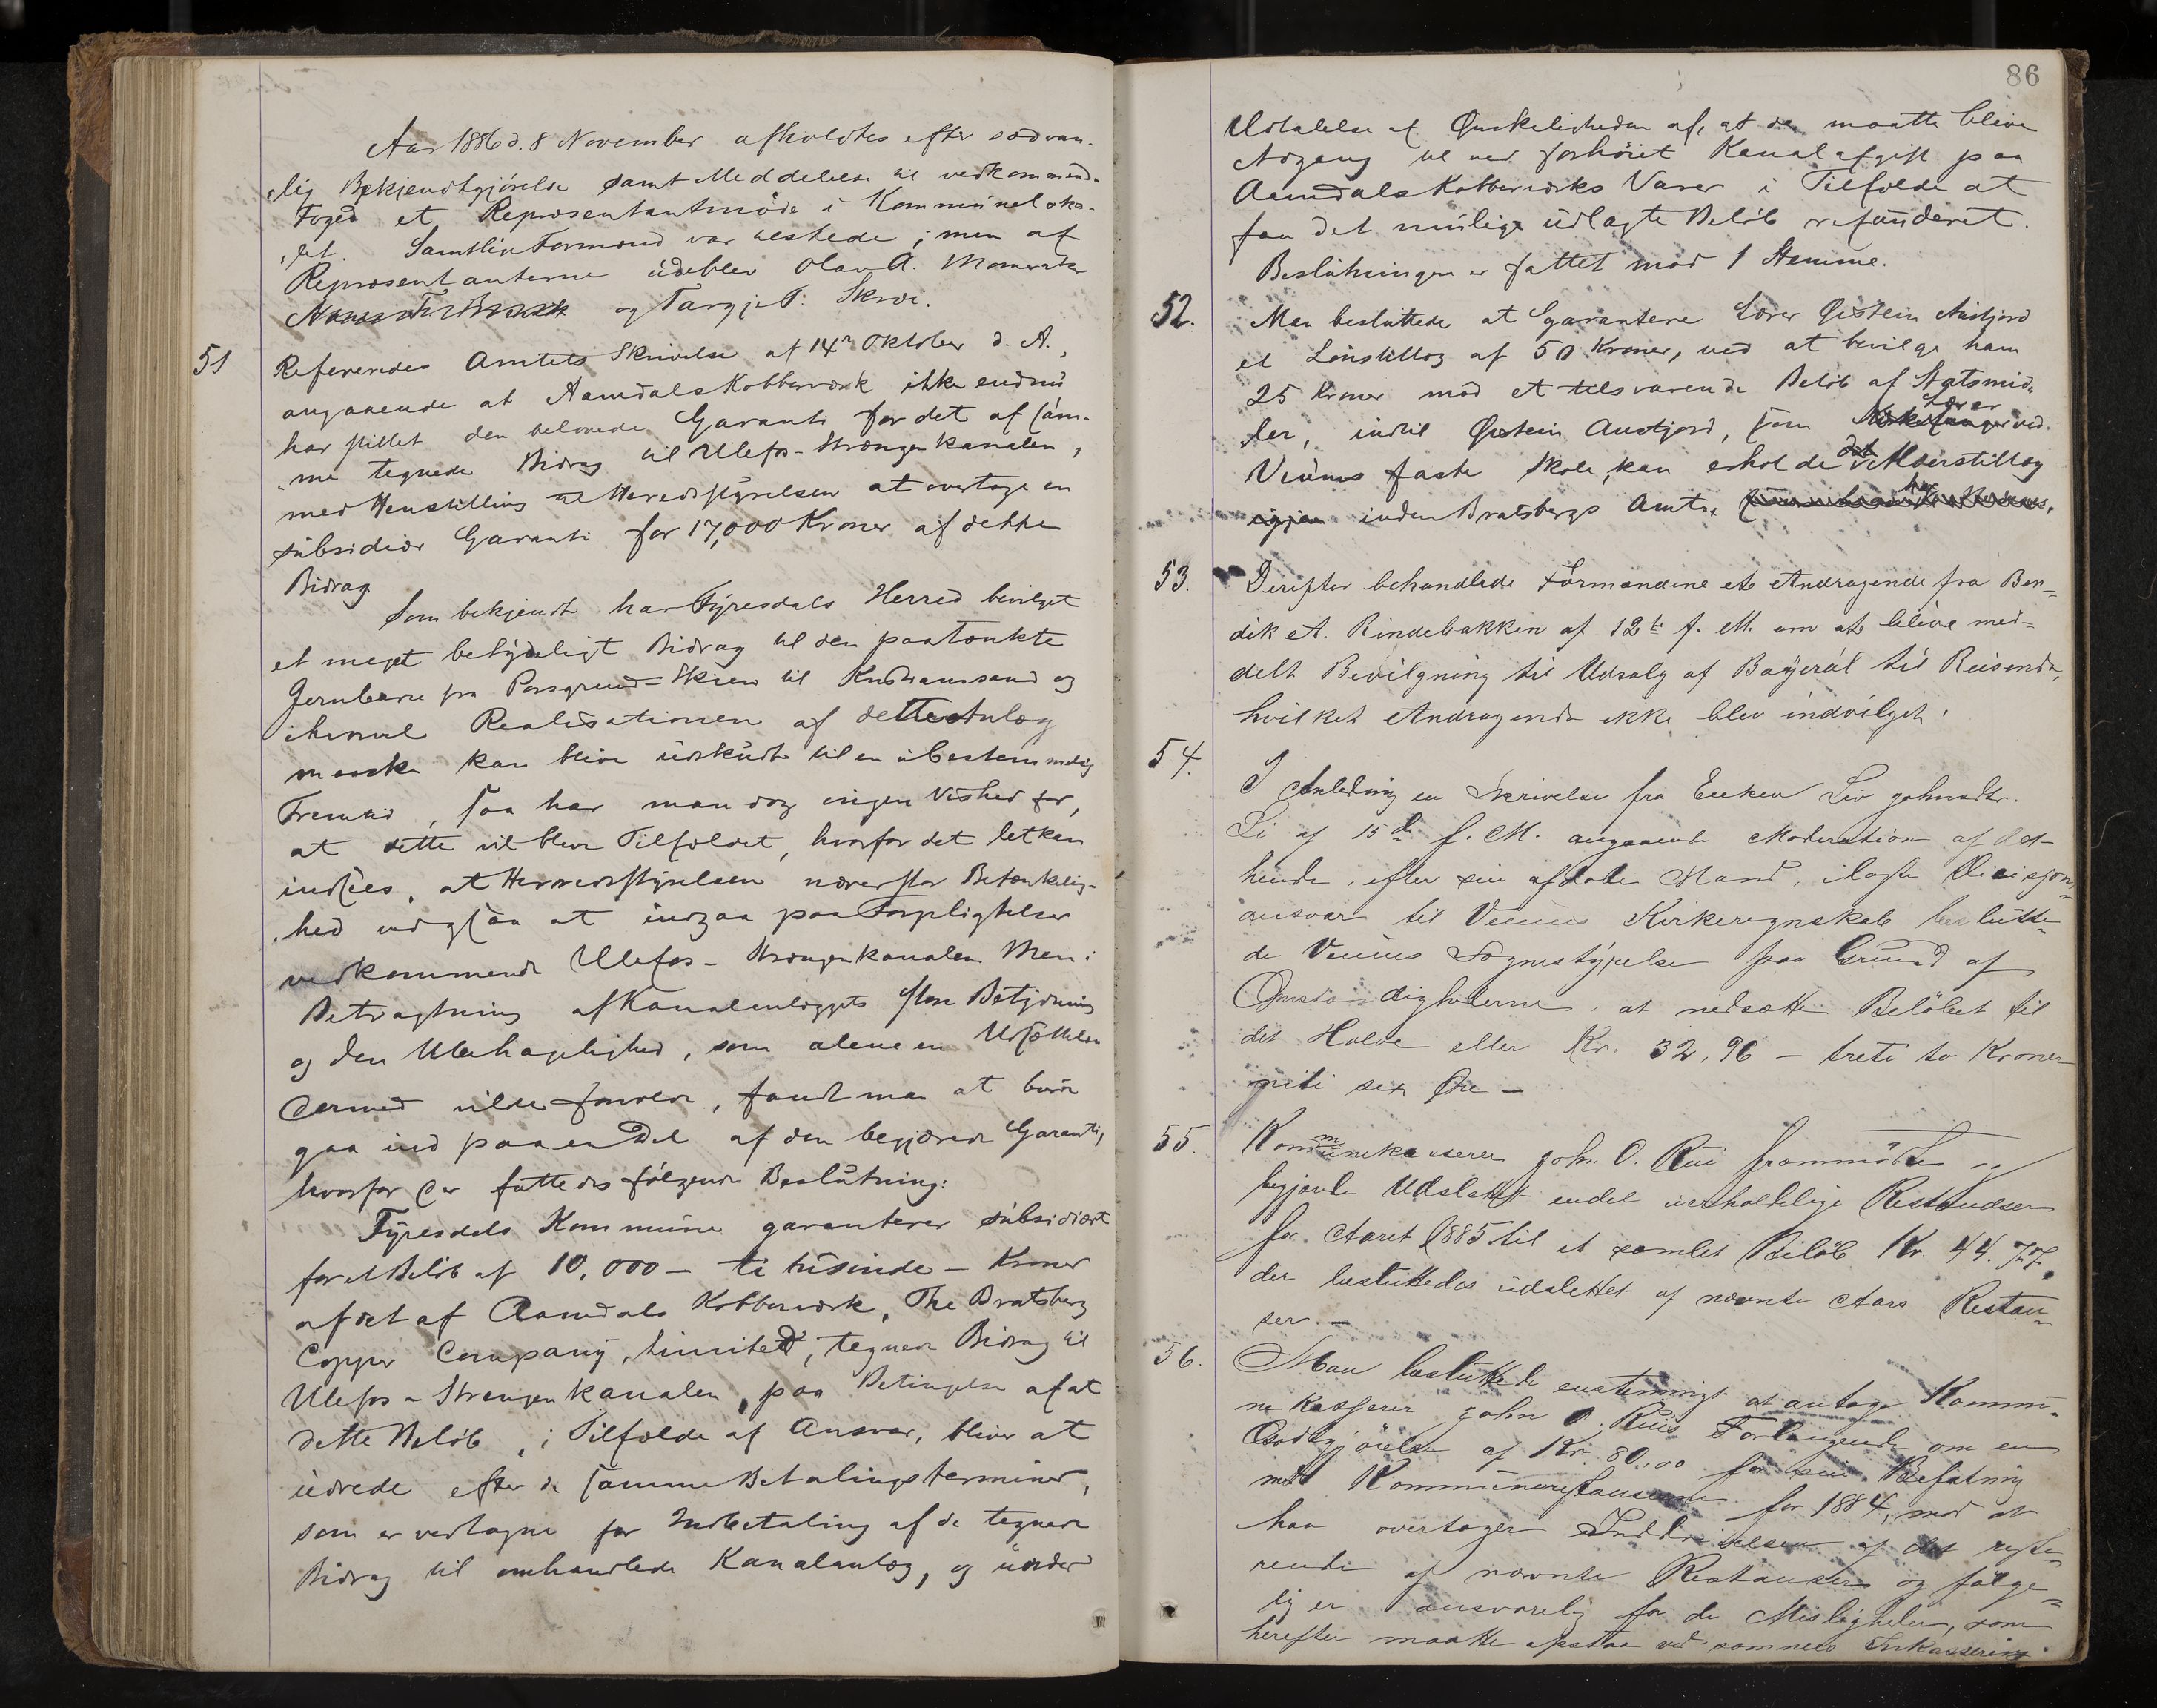 Aar 1886 d. 8 November afholdtes efter sædvan-
lig Bekjendtgjörelse samt Meddelelse til vedkommend.
Foged et Repræsentantmöde i Kommuneloka-
let. Samtlige Formænd var tilstede; men af
Repræsentanterne udeblev Olav A. Momrak
og Targje T. Skræi.
51 Refereredes Amtets Skrivelse af 14de Oktober d. A.,
angaaende at Aamdals Kobberværk ikke endnu
har stillet den belovede Garanti for det af sam-
me tegnede Bidrag til Ulefos-Strængenkanalen,
med Henstilling til Heredsstyrelsen at overtage en
subsidiær Garanti for 17,000 Kroner af dette
Bidrag
Som bekjendt har Tyresdals Herred bevilget
et meget betydeligt Bidrag til den paatænkte
Jernbane fra Porsgrund-Skien til Kristianssand og
ihvorvel Realisationen af dette Anlæg
maaske kan blive udskudt til en ubestemmelig
Fremtid, saa har man dog ingen Vished for,
at dette vil blive Tilfældet, hvorfor det let kan
indsees, at Herredsstyrelsen nærer stor Betænkelig-
hed ved ogsaa at indgaa paa Forpligtelser
vedkommende Ulefos-Strængenkanalen Men i
Betragtning af Kanalanlæggets store Betydning
og den Ubehagelighed, som alene en Udsættelse
dermed vilde forvolde, fandt man at burde
gaa ind paa en Del af den begjærede Garanti,
hvorfor der fattedes fölgende Beslutning:
Tyresdals Kommune garanterer subsidiært
for et Belöb af 10,000 – ti tusinde – Kroner
af det af Aamdals Kobberværk, The Bratsberg
Copper Company, limited, tegnede Bidrag til
Ulefos-Strængenkanalen, paa Betingelse af at
dette Belöb, i Tilfælde af Ansvar, bliver at
udrede efter de samme Betalingsterminer,
som er vedtagne for Indbetaling af de tegnede
Bidrag til omhandlede Kanalanlæg, og under
86
Udtalelse af Önskeligheden af, at der maatte blive
Adgang til ved forhöiet Kanalafgift paa
Aamdals Kobberværks Varer i Tilfælde at
faa det mulige udlagte Belöb refunderet.
Beslutningen er fattet mod 1 Stemme.
52. Man besluttede at garantere Lærer Östein Austjord
et Lönstillæg af 50 Kroner, ved at bevilge ham
25 Kroner mod et tilsvarende Belöb af Statsmid-
ler, indtil Östein Austjord, som Lærer ved
Veums faste Skole, kan erholde det Alderstillæg
igjen inden Bratsbergs Amt.
53. Derefter behandlede Formændene et Andragende fra Ben-
dik A. Rindebakken af 12te f. M. om at blive med-
delt Bevilgning til Udsalg af Bayeröl til Reisende,
hvilket Andragende ikke blev indvilget.
54. I Anledning en Skrivelse fra Enken Liv Johnsdtr.
Li af 15de f. M. angaaende Moderation af det
hende, efter sin afdöde Mand, ilagte Decisions-
ansvar til Veums Kirkeregnskab beslutte-
de Veums Sognestyrelse paa Grund af
Omstændighederne, at nedsætte Belöbet til
det Halve eller Kr. 32,96 – treti to Kroner
niti sex Öre –
55. Kommunekasserer John O. Rui fremmödte og
begjærte Udslettet endel uerholdelige Restandser
for Aaret 1885 til et samlet Belöb Kr. 44.77,
der besluttedes udslettet af nævnte Aars Restan-
ser. –
56. Man besluttede enstemmigt at antage Kommu-
nekasserer John O. Ruis Forlangende om en
Godtgjörelse af Kr. 80,00 for sin Befatning
med Kommunerestanserne for 1884, mod at
han overtager Inddrivelsen af det reste-
rende af nævnte Restanser og fölge-
lig er ansvarlig for de Misligheder, som
herefter maatte opstaa ved sammes Inkassering.